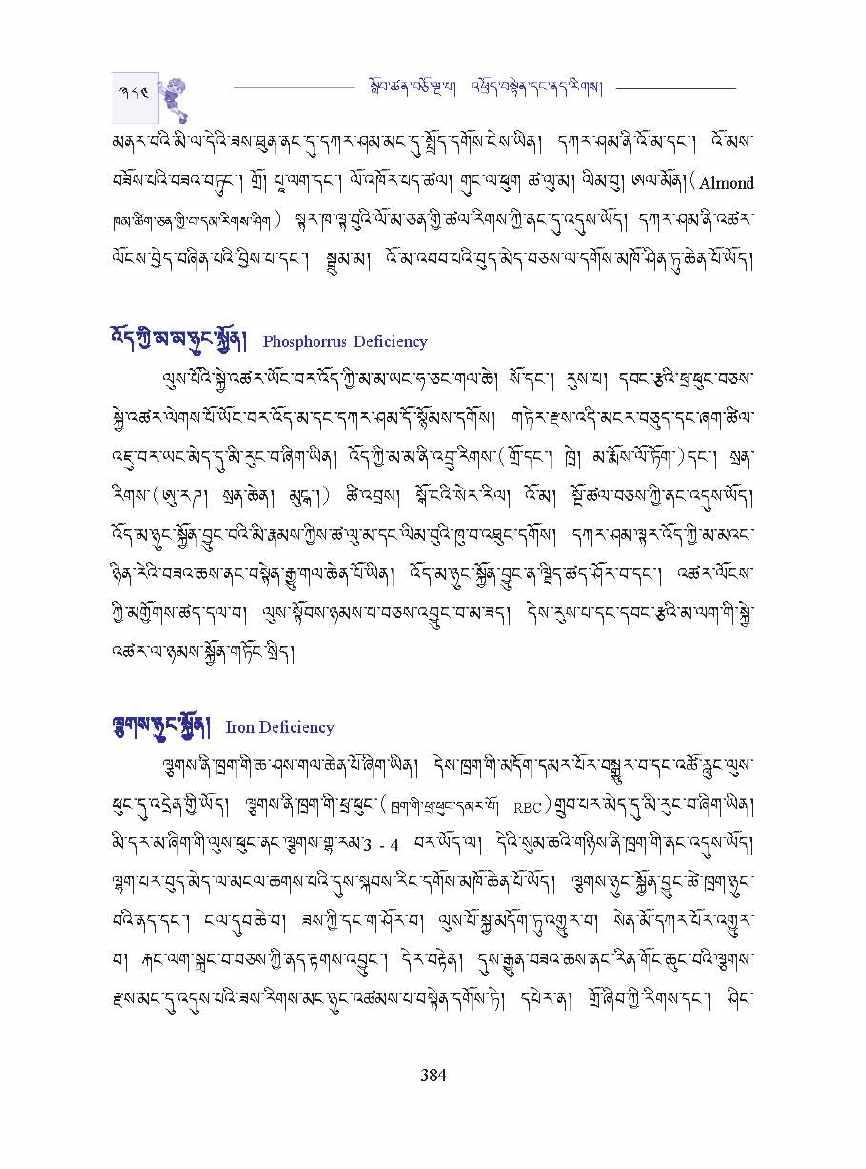 ༣༨༤ སློབ་ཚན་བཅོ་ལྔ་པ། འཕྲོད་བསྟེན་དང་ནད་རིགས།
མནར་བའི་མི་ལ་དེའི་ཟས་ཐུན་ནང་དུ་དཀར་ཤམ་མང་དུ་སྤྲོད་དགོས་ངེས་ཡིན། དཀར་ཤམ་ནི་འོ་མ་དང་། འོ་མས་
བཟོས་པའི་བཟའ་བཏུང་། གྲོ། པཱ་ལག་དང་། ལོ་འཁོར་པད་ཚལ། གུང་ལ་ཕུག ཚ་ལུ་མ། ལིམ་བུ། ཨལ་མོན།(Almond
ཁམ་ཚིག་ཅན་གྱི་བ་དམ་རིགས་ཤིག) སྟར་ཁ་ལྟ་བུའི་ལོ་མ་ཅན་གྱི་ཚལ་རིགས་ཀྱི་ནང་དུ་འདུས་ཡོད། དཀར་ཤམ་ནི་འཚར་
ལོངས་བྱེད་བཞིན་པའི་བྱིས་པ་དང་། སྦྲུམ་མ། འོ་མ་འབབ་པའི་བུད་མེད་བཅས་ལ་དགོས་མཁོ་ཤིན་ཏུ་ཆེན་པོ་ཡོད།
འོད་ཀྱི་མ་མ་ཉུང་སྐྱོན། Phosphorrus Deficiency
ལུས་པོའི་སྐྱེ་འཚར་ཡོང་བར་འོད་ཀྱི་མ་མ་ཡང་ཧ་ཅང་གལ་ཆེ། སོ་དང་། རུས་པ། དབང་རྩའི་ཕྲ་ཕུང་བཅས་
སྐྱེ་འཚར་ལེགས་པོ་ཡོང་བར་འོད་མ་དང་དཀར་ཤམ་དོ་སྙོམས་དགོས། གཏེར་རྫས་འདི་མངར་བཅུད་དང་ཞག་ཚིལ་
འཇུ་བར་ཡང་མེད་དུ་མི་རུང་བ་ཞིག་ཡིན། འོད་ཀྱི་མ་མ་ནི་འབྲུ་རིགས་(གྲོ་དང་། ཁྲེ། མ་རྨོས་ལོ་ཏོག་)དང་། སྲན་
རིགས་(ཨུ་རཌ། སྲན་ཆེན། མུངྒ།) ཚི་འབྲས། སྒོ་ངའི་སེར་རིལ། འོ་མ། སྔོ་ཚལ་བཅས་ཀྱི་ནང་འདུས་ཡོད།
འོད་མ་ཉུང་སྐྱོན་བྱུང་བའི་མི་རྣམས་ཀྱིས་ཚ་ལུ་མ་དང་ལིམ་བུའི་ཁུ་བ་འཐུང་དགོས། དཀར་ཤམ་ལྟར་འོད་ཀྱི་མ་མའང་
ཉིན་རེའི་བཟའ་ཆས་ནང་བསྟེན་རྒྱུ་གལ་ཆེན་པོ་ཡིན། འོད་མ་ཉུང་སྐྱོན་བྱུང་ན་ལྗིད་ཚད་ཤོར་བ་དང་། འཚར་ལོངས་
ཀྱི་མགྱོགས་ཚད་དལ་བ། ལུས་སྟོབས་ཉམས་པ་བཅས་འབྱུང་བ་མ་ཟད། དེས་རུས་པ་དང་དབང་རྩའི་མ་ལག་གི་སྐྱེ་
འཚར་ལ་ཉམས་སྐྱོན་གཏོང་སྲིད།
ལྕགས་ཉུང་སྐྱོན། Iron Deficiency
ལྕགས་ནི་ཁྲག་གི་ཆ་ཤས་གལ་ཆེན་པོ་ཞིག་ཡིན། དེས་ཁྲག་གི་མདོག་དམར་པོར་བསྒྱུར་བ་དང་འཚོ་རླུང་ལུས་
ཕུང་དུ་འདྲེན་གྱི་ཡོད། ལྕགས་ནི་ཁྲག་གི་ཕྲ་ཕུང་(ཁྲག་གི་ཕྲ་ཕུང་དམར་པོ། RBC)གྲུབ་པར་མེད་དུ་མི་རུང་བ་ཞིག་ཡིན།
མི་དར་མ་ཞིག་གི་ལུས་ཕུང་ནང་ལྕགས་གྷ་རམ་3 - 4 བར་ཡོད་ལ། དེའི་སུམ་ཆའི་གཉིས་ནི་ཁྲག་གི་ནང་འདུས་ཡོད།
ལྷག་པར་བུད་མེད་ལ་མངལ་ཆགས་པའི་དུས་སྐབས་རིང་དགོས་མཁོ་ཆེན་པོ་ཡོད། ལྕགས་ཉུང་སྐྱོན་བྱུང་ཚེ་ཁྲག་ཉུང་
བའི་ནད་དང་། ངལ་དུབ་ཆེ་བ། ཟས་ཀྱི་དང་ག་ཤོར་བ། ལུས་པོ་སྐྱ་མདོག་ཏུ་འགྱུར་བ། སེན་མོ་དཀར་པོར་འགྱུར་
བ། རྐང་ལག་སྐྲང་བ་བཅས་ཀྱི་ནད་རྟགས་འབྱུང་། དེར་བརྟེན། དུས་རྒྱུན་བཟའ་ཆས་ནང་རིན་གོང་ཆུང་བའི་ལྕགས་
རྫས་མང་དུ་འདུས་པའི་ཟས་རིགས་མང་ཉུང་འཚམས་པ་བསྟེན་དགོས་ཏེ། དཔེར་ན། གྲོ་ཞིབ་ཀྱི་རིགས་དང་། ཤིང་
384